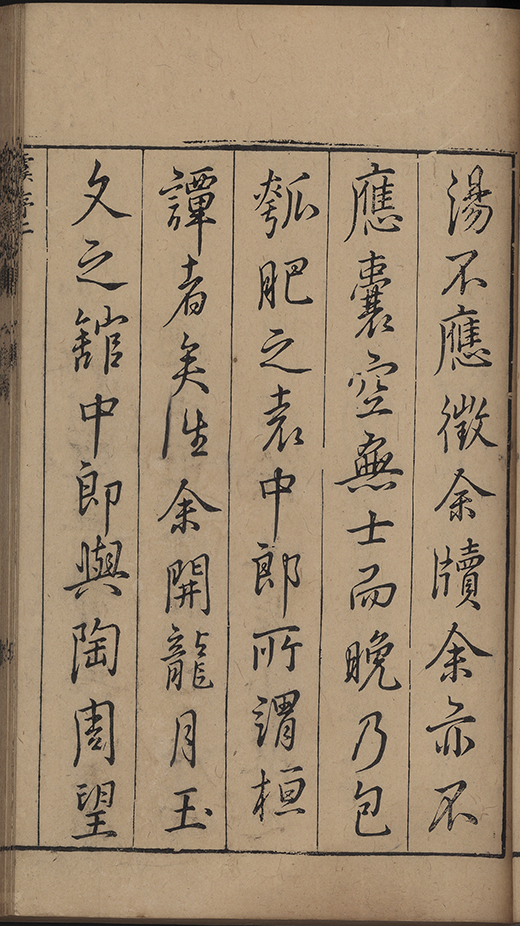 湯不應徵余牘余亦不
應囊空無士而晚乃包
瓠肥之袁中郎所謂桓
譚者矣往余開龍月玉
文之館中郎與陶周望
序二